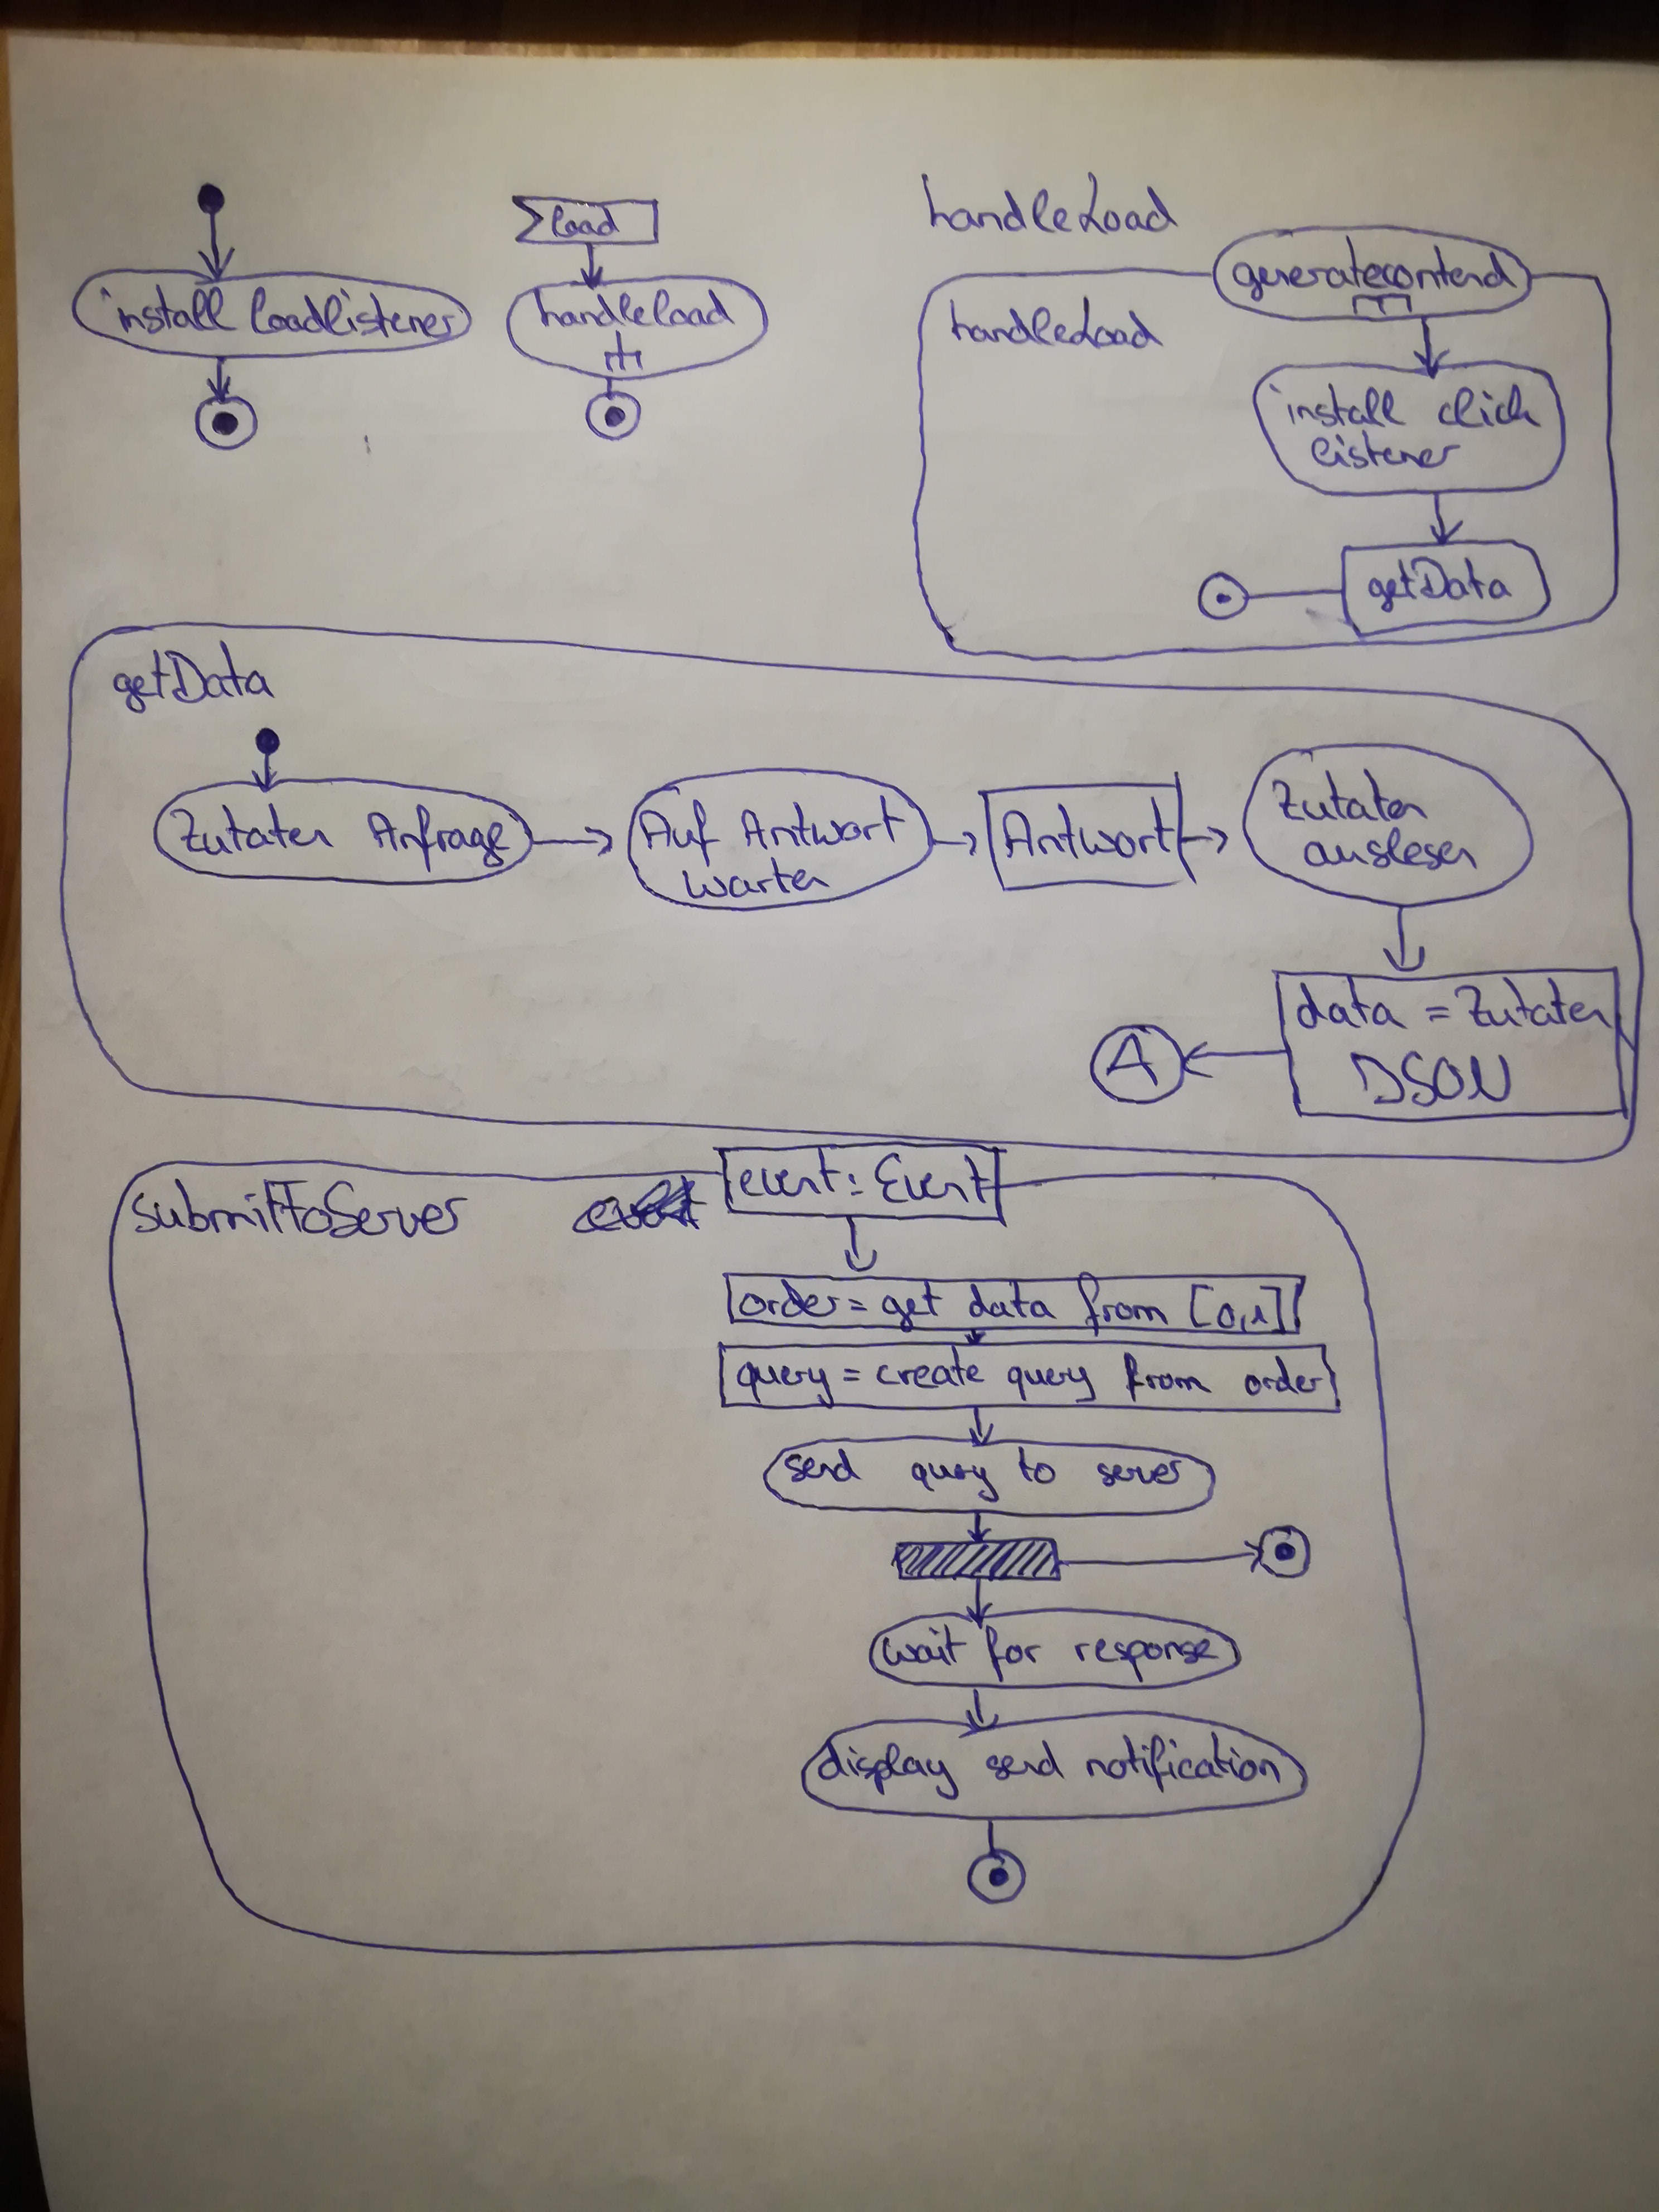 install loadlistener
load
handleload
handleLoad
handleLoad
generatecontend
install click
listener
getData
getData
Zutaten Anfrage
Auf Antwort
warten
Antwort
Zutaten
auslesen
data = Zutaten
JSON
A
submitToServer
event: Event
order = get data from [0,1]
query = create query from order
send query to server
wait for response
display send notification